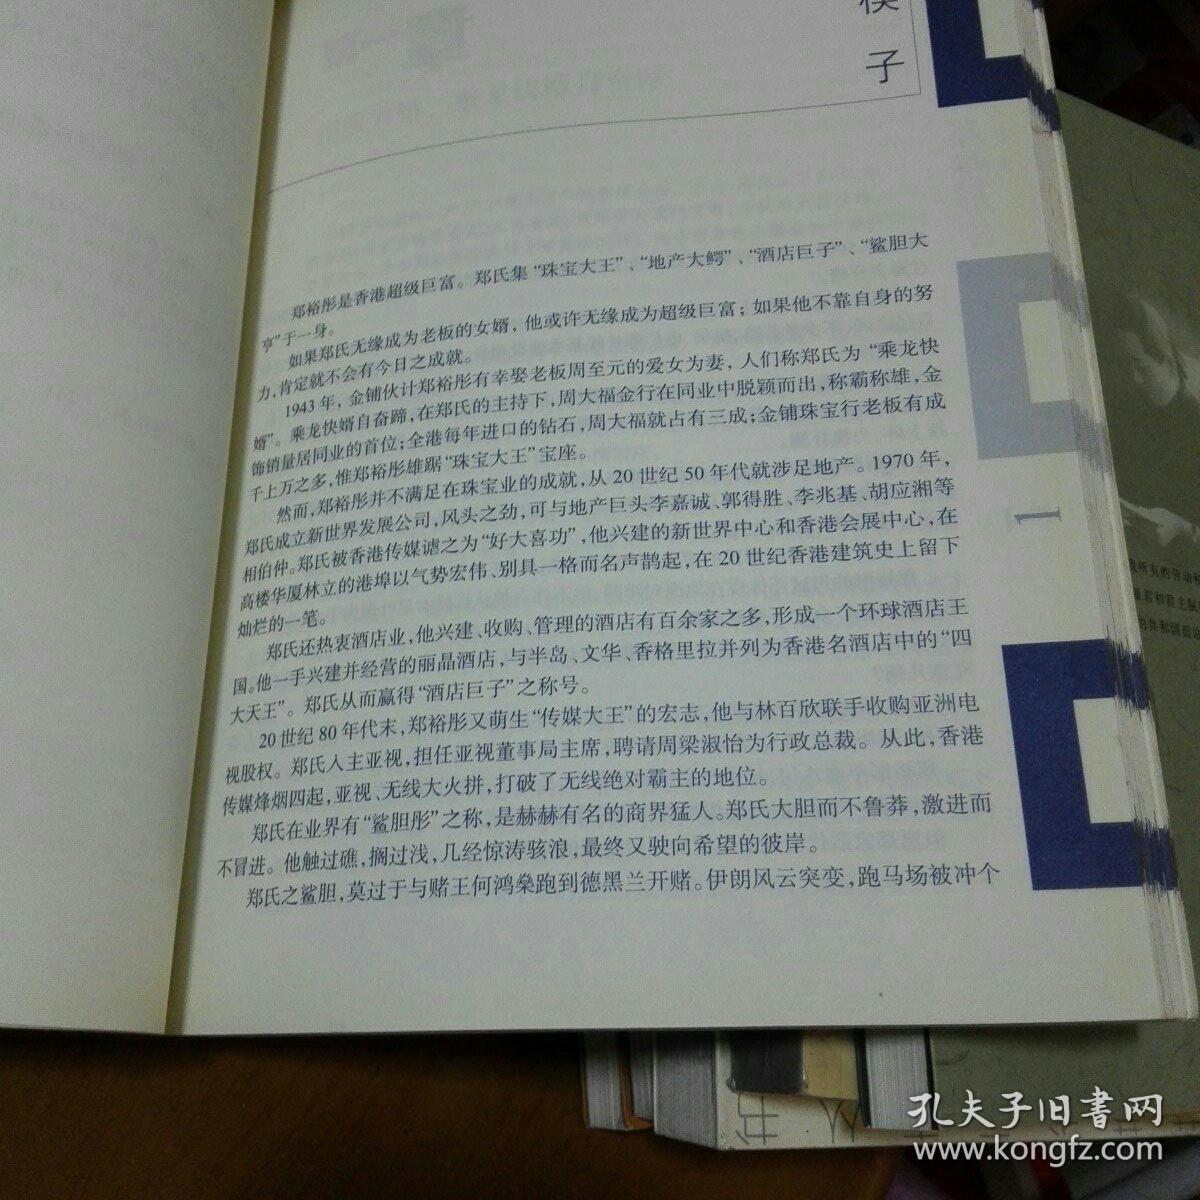 楔
子
郑裕彤是香港超级巨富。郑氏集“珠宝大王”、“地产大鳄”、“酒店巨子”、“鲨胆大
亨”于一身。
如果郑氏无缘成为老板的女婿，他或许无缘成为超级巨富；如果他不靠自身的努
力，肯定就不会有今日之成就。
1943年，金铺伙计郑裕彤有幸娶老板周至元的爱女为妻，人们称郑氏为“乘龙快
婿”。乘龙快婿自奋蹄，在郑氏的主持下，周大福金行在同业中脱颖而出，称霸称雄，金
饰销量居同业的首位；全港每年进口的钻石，周大福就占有三成；金铺珠宝行老板有成
千上万之多，惟郑裕彤雄踞“珠宝大王”宝座。
然而，郑裕彤并不满足在珠宝业的成就，从20世纪50年代就涉足地产。1970年，
郑氏成立新世界发展公司，风头之劲，可与地产巨头李嘉诚、郭得胜、李兆基、胡应湘等
相伯仲。郑氏被香港传媒谑之为“好大喜功”，他兴建的新世界中心和香港会展中心，在
高楼华厦林立的港埠以气势宏伟、别具一格而名声鹊起，在20世纪香港建筑史上留下
灿烂的一笔。
郑氏还热衷酒店业，他兴建、收购、管理的酒店有百余家之多，形成一个环球酒店王
国。他一手兴建并经营的丽晶酒店，与半岛、文华、香格里拉并列为香港名酒店中的“四
大天王”。郑氏从而赢得“酒店巨子”之称号。
20世纪80年代末，郑裕彤又萌生“传媒大王”的宏志，他与林百欣联手收购亚洲电
视股权。郑氏入主亚视，担任亚视董事局主席，聘请周梁淑怡为行政总裁。从此，香港
传媒烽烟四起，亚视、无线大火拼，打破了无线绝对霸主的地位。
郑氏在业界有“鲨胆彤”之称，是赫赫有名的商界猛人。郑氏大胆而不鲁莽，激进而
不冒进。他触过礁，搁过浅，几经惊涛骇浪，最终又驶向希望的彼岸。
郑氏之鲨胆，莫过于与赌王何鸿燊跑到德黑兰开赌。伊朗风云突变，跑马场被冲个
1
孔夫子旧书网
www.kongfz.com